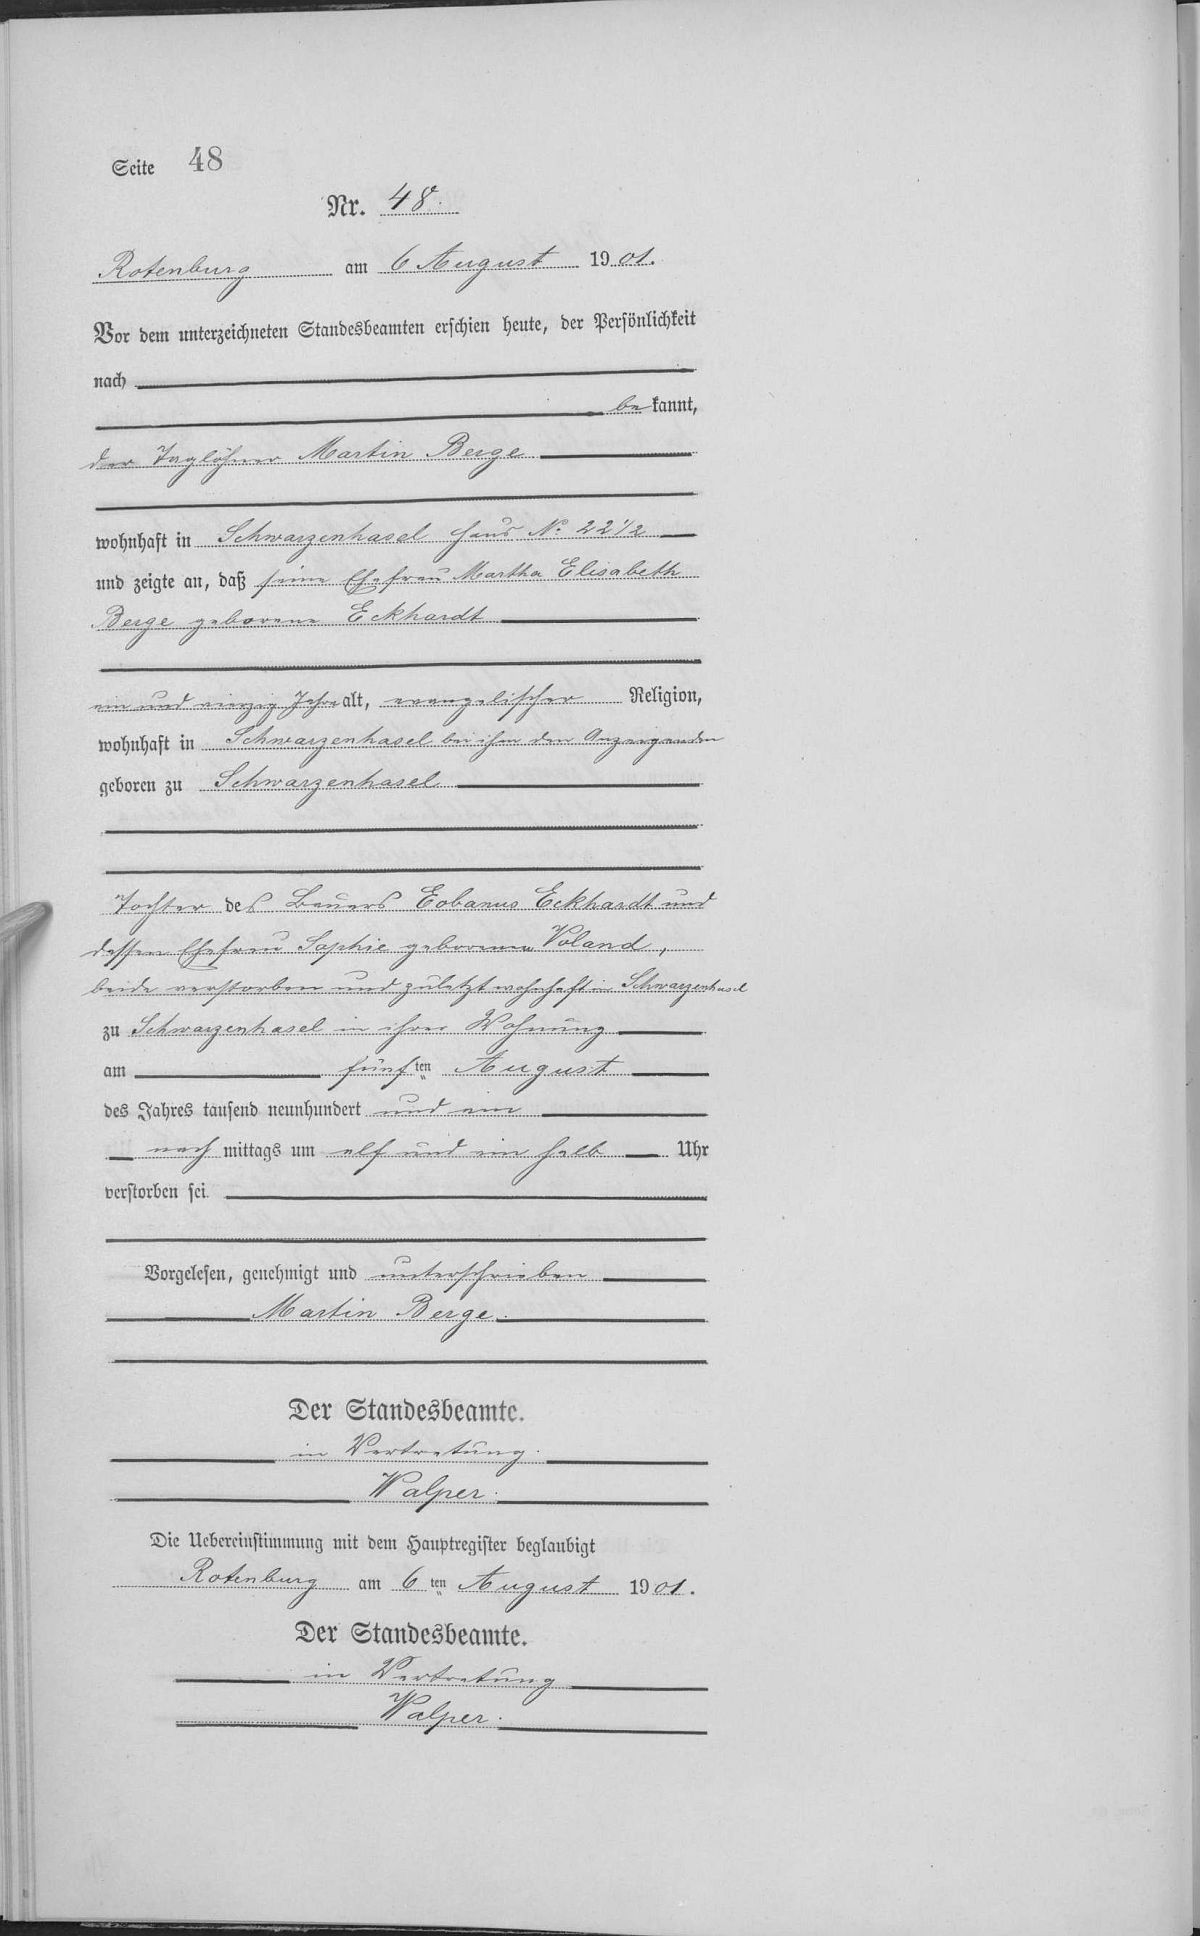 Seite 48
Nr. 48.
Rotenburg am 6 August 1901.
Vor dem unterzeichneten Standesbeamten erschien heute, der Persönlichkeit
nach
bekannt,
der Taglöhner Martin Berge
wohnhaft in Schwarzenhasel Haus No: 22 1/2
und zeigte an, daß seine Ehefrau Martha Elisabeth
Berge geborene Eckhardt
ein und vierzig Jahre alt, evangelischer Religion,
wohnhaft in Schwarzenhasel bei ihm den Anzeigenden
geboren zu Schwarzenhasel
Tochter des Bauers Eobanus Eckhardt und
dessen Ehefrau Sophie geborenen Voland,
beide verstorben und zuletzt wohnhaft in Schwarzenhasel
zu Schwarzenhasel in ihrer Wohnung
am fünften August
des Jahres tausend neunhundert und ein
nach mittags um elf und ein halb Uhr
verstorben sei.
Vorgelesen, genehmigt und unterschrieben
Martin Berge.
Der Standesbeamte.
in Vertretung.
Walper.
Die Uebereinstimmung mit dem Hauptregister beglaubigt
Rotenburg am 6ten August 1901.
Der Standesbeamte.
in Vertretung
Walper.